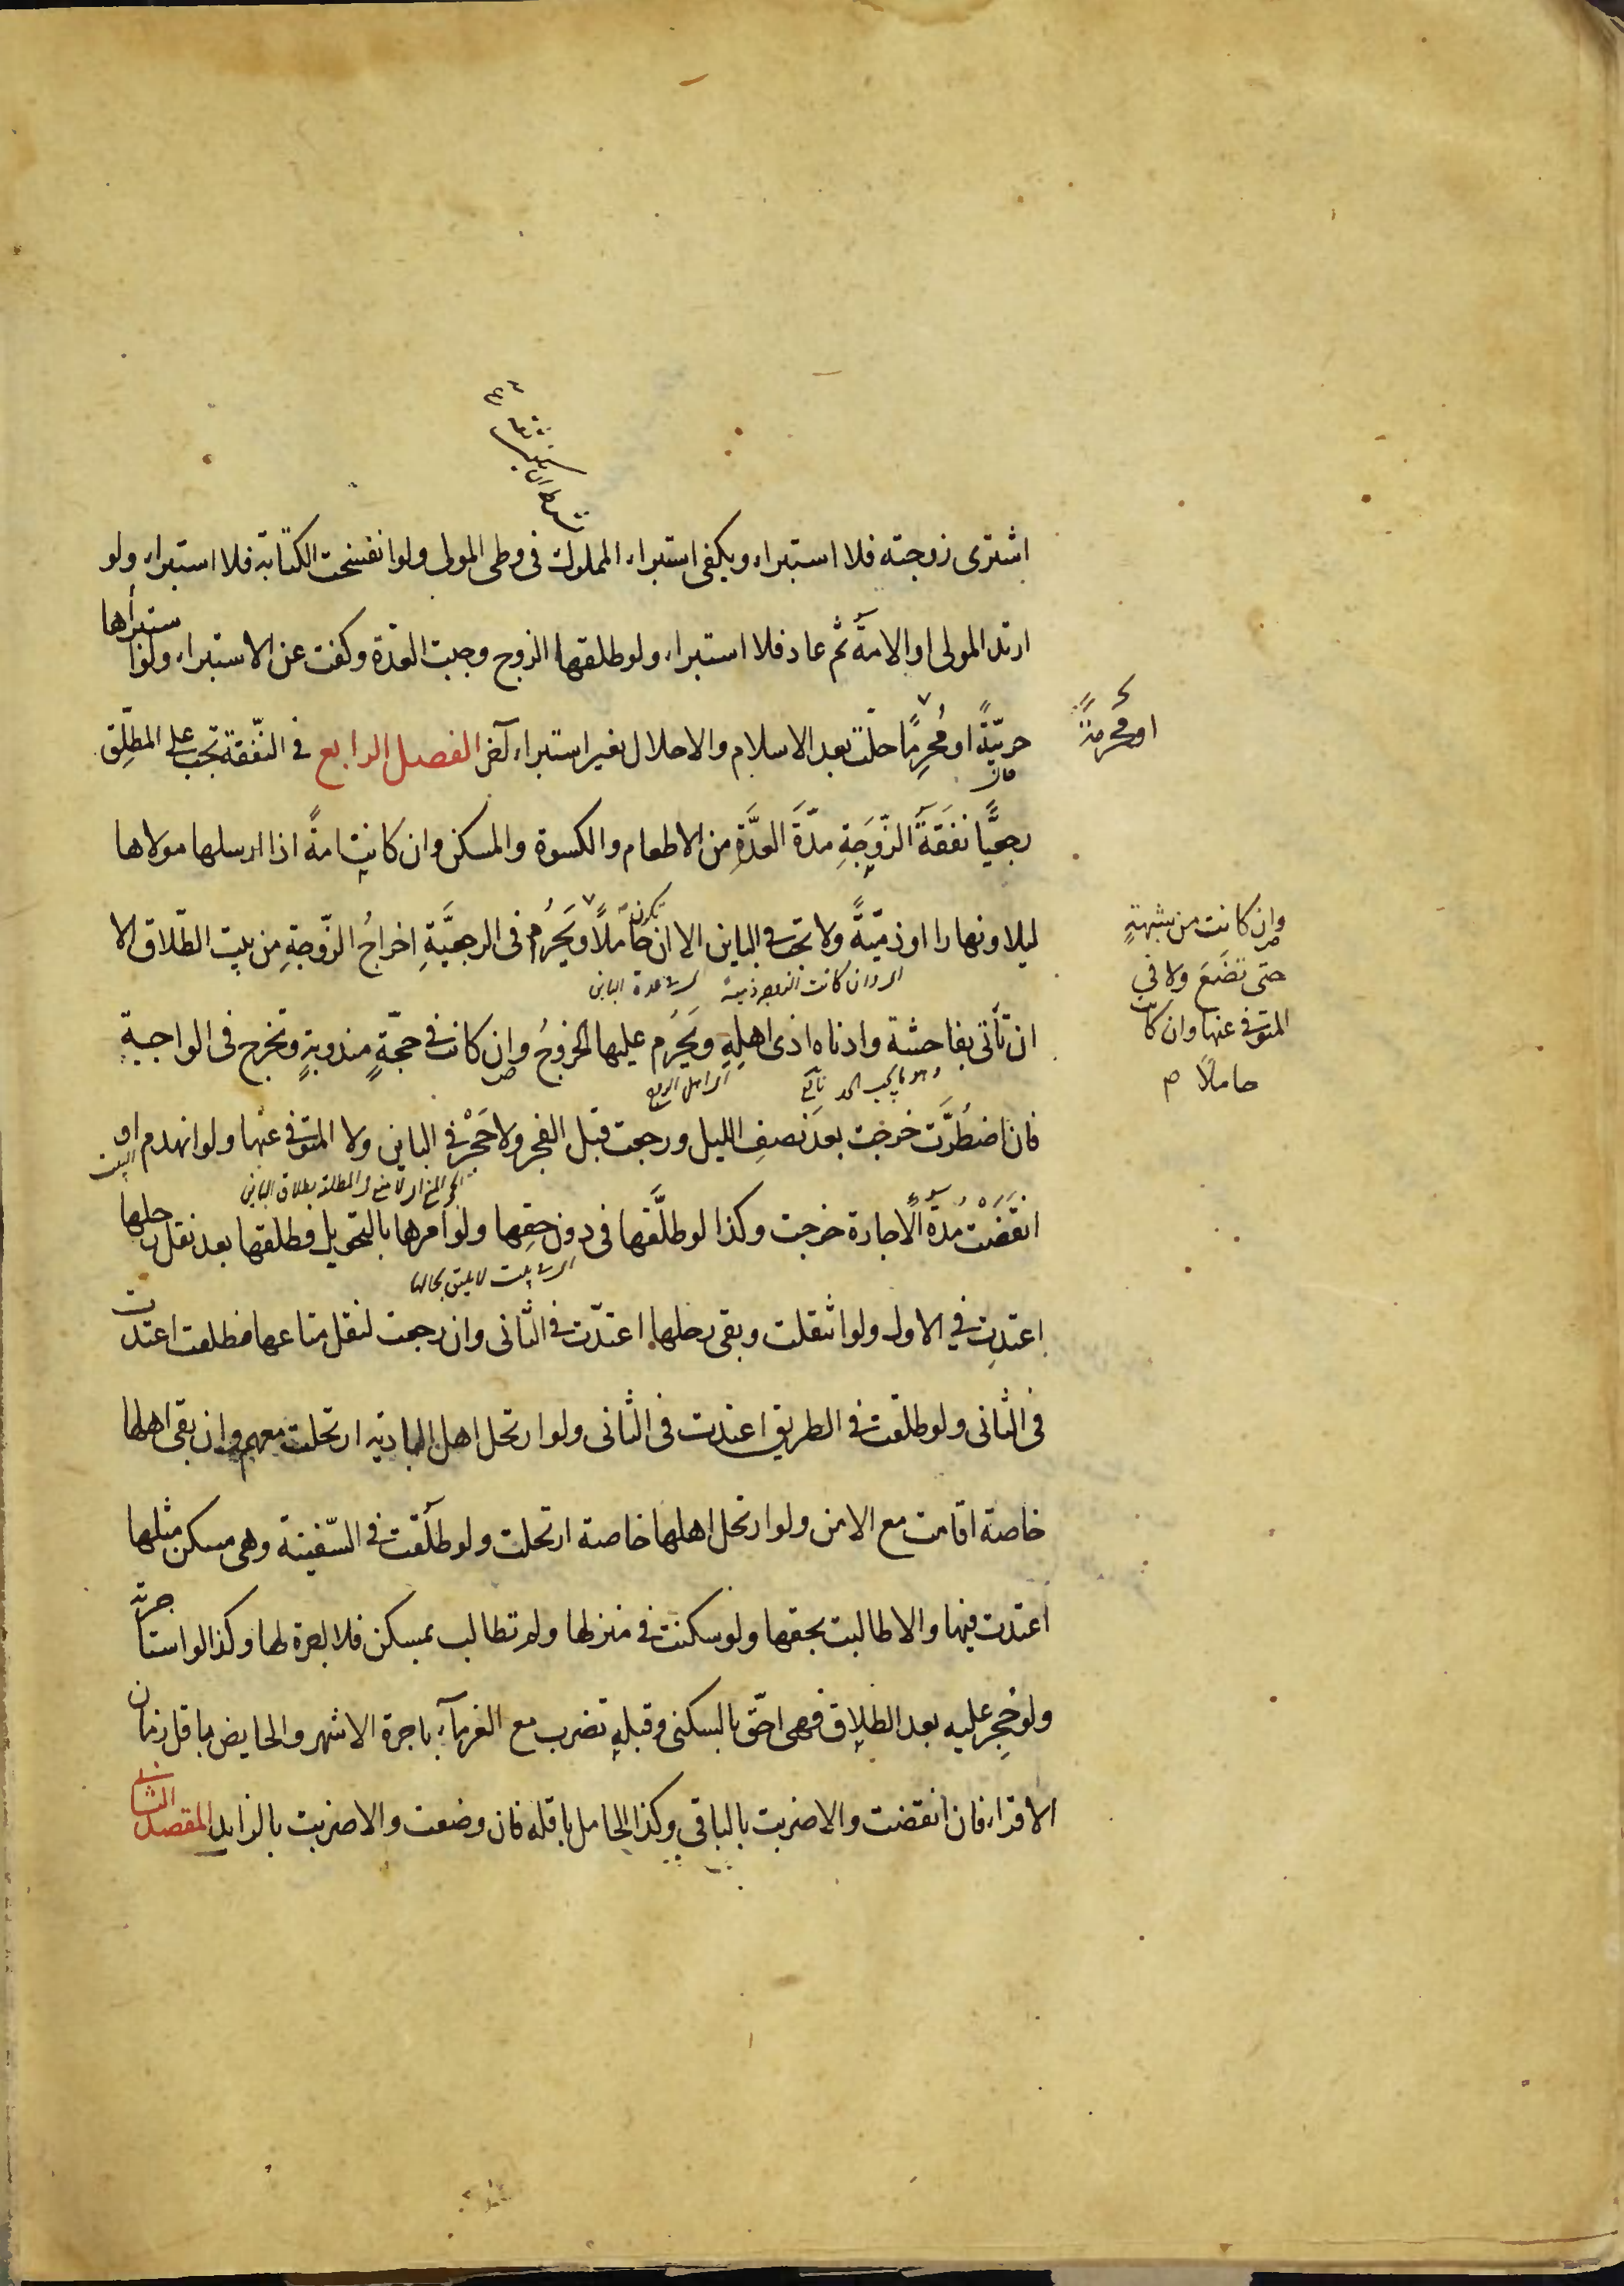 اشترى زوجته فلا استبراء ويكفى استبراء المملوك فى وطى المولى ولو انفسخت الكتابة فلا استبراء ولو
ارتد المولى او الامة ثم عاد فلا استبراء ولو طلقها الزوج وجبت العدّة وكفت عن الاستبراء ولو استبرأها
حربيّةً او مُحرِمًا حلّت بعد الاسلام والاحلال بغير استبراء آخر الفصل الرابع فى النّفقة تجب على المطلّق
او محرمةً
رجعيًّا نفقةَ الزّوجةِ مدّةَ العدَّةِ من الاطعام والكسوة والمسكن وان كانت امةً اذا ارسلها مولاها
ليلا ونهارا او ذميّةً ولا تجب فى الباين الا ان تكون حاملاً ويَحرُم فى الرجعيَّةِ اخراجُ الزّوجةِ من بيت الطّلاق الا
وان كانت من شبهةٍ
حتى تضَعَ ولا فى
المتوفى عنها وان كانت
حاملاً
وان كانت الزوجة ذمية
عدة الباين
ان تأتى بفاحشة وادناه اذى اهلِهِ ويَحرُم عليها الخروجُ وان كانت فى حجّةٍ مندوبةٍ وتخرج فى الواجبةِ
وهو ما يجب الحد
اهل الزوج
فان اضطُرَّت خرجت بعدَ نصفِ الليل ورجعت قبل الفجر ولا حَجْرَ فى الباين ولا المتوفى عنها ولو انهدم او
البيت
لا منع المطلقة بطلاق الباين
انقَضَتْ مُدّة الاجارة خرجت وكذا لو طلَّقها فى دون حقِها ولو امرها بالتحويل فطلقها بعد نقل رحلها
بيت لا يليق بحالها
اعتدت فى الاول ولو انتقلت وبقى رحلها اعتدّت فى الثانى وان رجعت لنقل متاعها فطلقت اعتدت
فى الثانى ولو طلقت فى الطريق اعتدت فى الثانى ولو ارتحل اهل البادية ارتحلت معهم وان بقى اهلها
خاصة اقامت مع الامن ولو ارتحل اهلها خاصة ارتحلت ولو طلّقت فى السّفينة وهى مسكن مثلها
اعتدت فيها والا طالبت بحقها ولو سكنت فى منزلها ولم تطالب بمسكن فلا اجرة لها وكذا لو استاجرته
ولو حُجِر عليه بعد الطلاق فهى احقّ بالسكنى وقبله تضرب مع الغرمآء باجرة الاشهر والحايض باقل زمان
الاقراء فان انقضت والا ضربت بالباقى وكذا الحامل باقله فان وضعت والا ضربت بالزايد المقصد الثانى